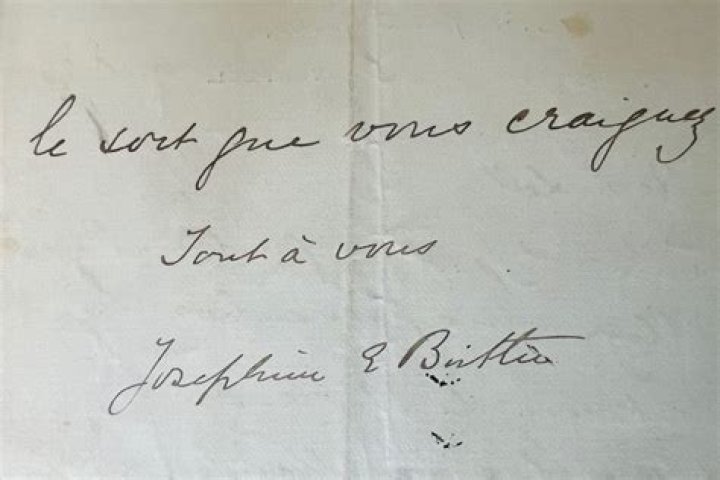 le sort que vous craignez
Tout à vous
Josephine E Butler